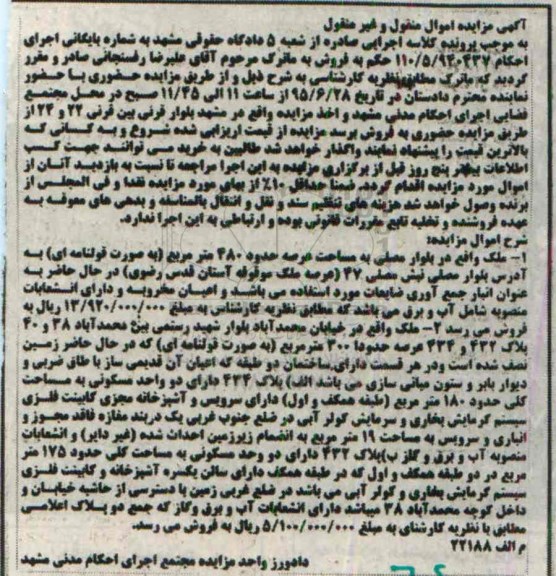 آگهی مزایده اموال منقول و غیر منقول
به موجب پرونده کلاسه اجرایی صادره از شعبه ۵ دادگاه حقوقی مشهد به شماره بایگانی اجرای
احکام ۱۱۰/۵/۹۴۰۴۳۷ حکم به فروش به ماترک مرحوم آقای علیرضا رفسنجانی صادر و مقرر
گردید که ماترک مطابق نظریه کارشناسی به شرح ذیل و از طریق مزایده حضوری با حضور
نماینده محترم دادستان در تاریخ ۹۵/۶/۲۸ از ساعت ۱۱ الی ۱۱/۴۵ صبح در محل مجتمع
قضایی اجرای احکام مدنی مشهد و اخذ مزایده واقع در مشهد بلوار قرنی بین قرنی ۲۲ و ۲۴ از
طریق مزایده حضوری به فروش برسد مزایده از قیمت ارزیابی شده شروع و به کسانی که
بالاترین قیمت را پیشنهاد نمایند واگذار خواهد شد طالبین به خرید می توانند جهت کسب
اطلاعات بیشتر پنج روز قبل از برگزاری مزایده به این اجرا مراجعه تا نسبت به بازدید آنان از
اموال مورد مزایده اقدام گردد. ضمنا حداقل ۱۰٪ از بهای مورد مزایده نقدا و فی المجلس از
برنده وصول خواهد شد هزینه های تنظیم سند و نقل و انتقال بالمناسفه و بدهی های معوقه به
عهده فروشنده و تخلیه تابع مقررات قانونی بوده و ارتباطی به این اجرا ندارد.
شرح اموال مزایده:
۱- ملک واقع در بلوار مصلی به مساحت عرصه حدود ۴۸۰ متر مربع (به صورت قولنامه ای) به
آدرس بلوار مصلی نبش مصلی ۴۷ (عرصه ملک موقوفه آستان قدس رضوی) در حال حاضر به
عنوان انبار جمع آوری ضایعات مورد استفاده می باشد و اعیان مخروبه و دارای انشعابات
منصوبه شامل آب و برق می باشد که مطابق نظریه کارشناس به مبلغ ۱۳/۹۲۰/۰۰۰/۰۰۰ ریال به
فروش می رسد ۲- ملک واقع در خیابان محمدآباد بلوار شهید رستمی بین محمدآباد ۳۸ و ۴۰
پلاک ۴۳۲ و ۴۳۴ عرصه حدودا ۳۰۰ مترمربع (به صورت قولنامه ای) که در حال حاضر زمین
نصف شده است ودر هر قسمت دارای ساختمان دو طبقه که اعیان آن قدیمی ساز با طاق ضربی و
دیوار باربر و ستون میانی سازی می باشد الف) پلاک ۴۳۴ دارای دو واحد مسکونی به مساحت
کلی حدود ۱۸۰ متر مربع (طبقه همکف و اول) دارای سرویس و آشپزخانه مجزی کابینت فلزی
سیستم گرمایش بخاری و سرمایش کولر آبی در ضلع جنوب غربی یک دربند مغازه فاقد مجوز و
انباری و سرویس به مساحت ۱۹ متر مربع به انضمام زیرزمین احداث شده (غیر دایر) و انشعابات
منصوبه آب و برق و گاز ب)پلاک ۴۳۲ دارای دو وحد مسکونی به مساحت کلی حدود ۱۷۵ متر
مربع در دو طبقه همکف و اول که در طبقه همکف دارای سالن یکسره آشپزخانه و کابینت فلزی
سیستم گرمایش بخاری و کولر آبی می باشد در ضلع غربی زمین با دسترسی از حاشیه خیابان و
داخل کوچه محمدآباد ۳۸ میباشد دارای انشعابات آب و برق وگاز که جمع دو پلاک اعلامی
مطابق با نظریه کارشنای به مبلغ ۵/۱۰۰/۰۰۰/۰۰۰ ریال به فروش می رسد.
م الف ۲۲۱۸۸
دادورز واحد مزایده مجتمع اجرای احکام مدنی مشهد